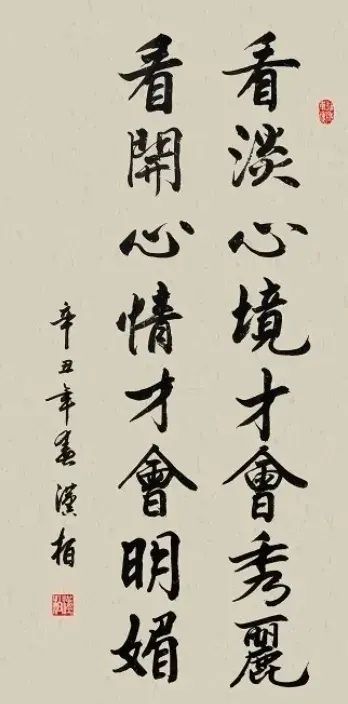 看淡心境才會秀麗
看開心情才會明媚
辛丑年春漢栢